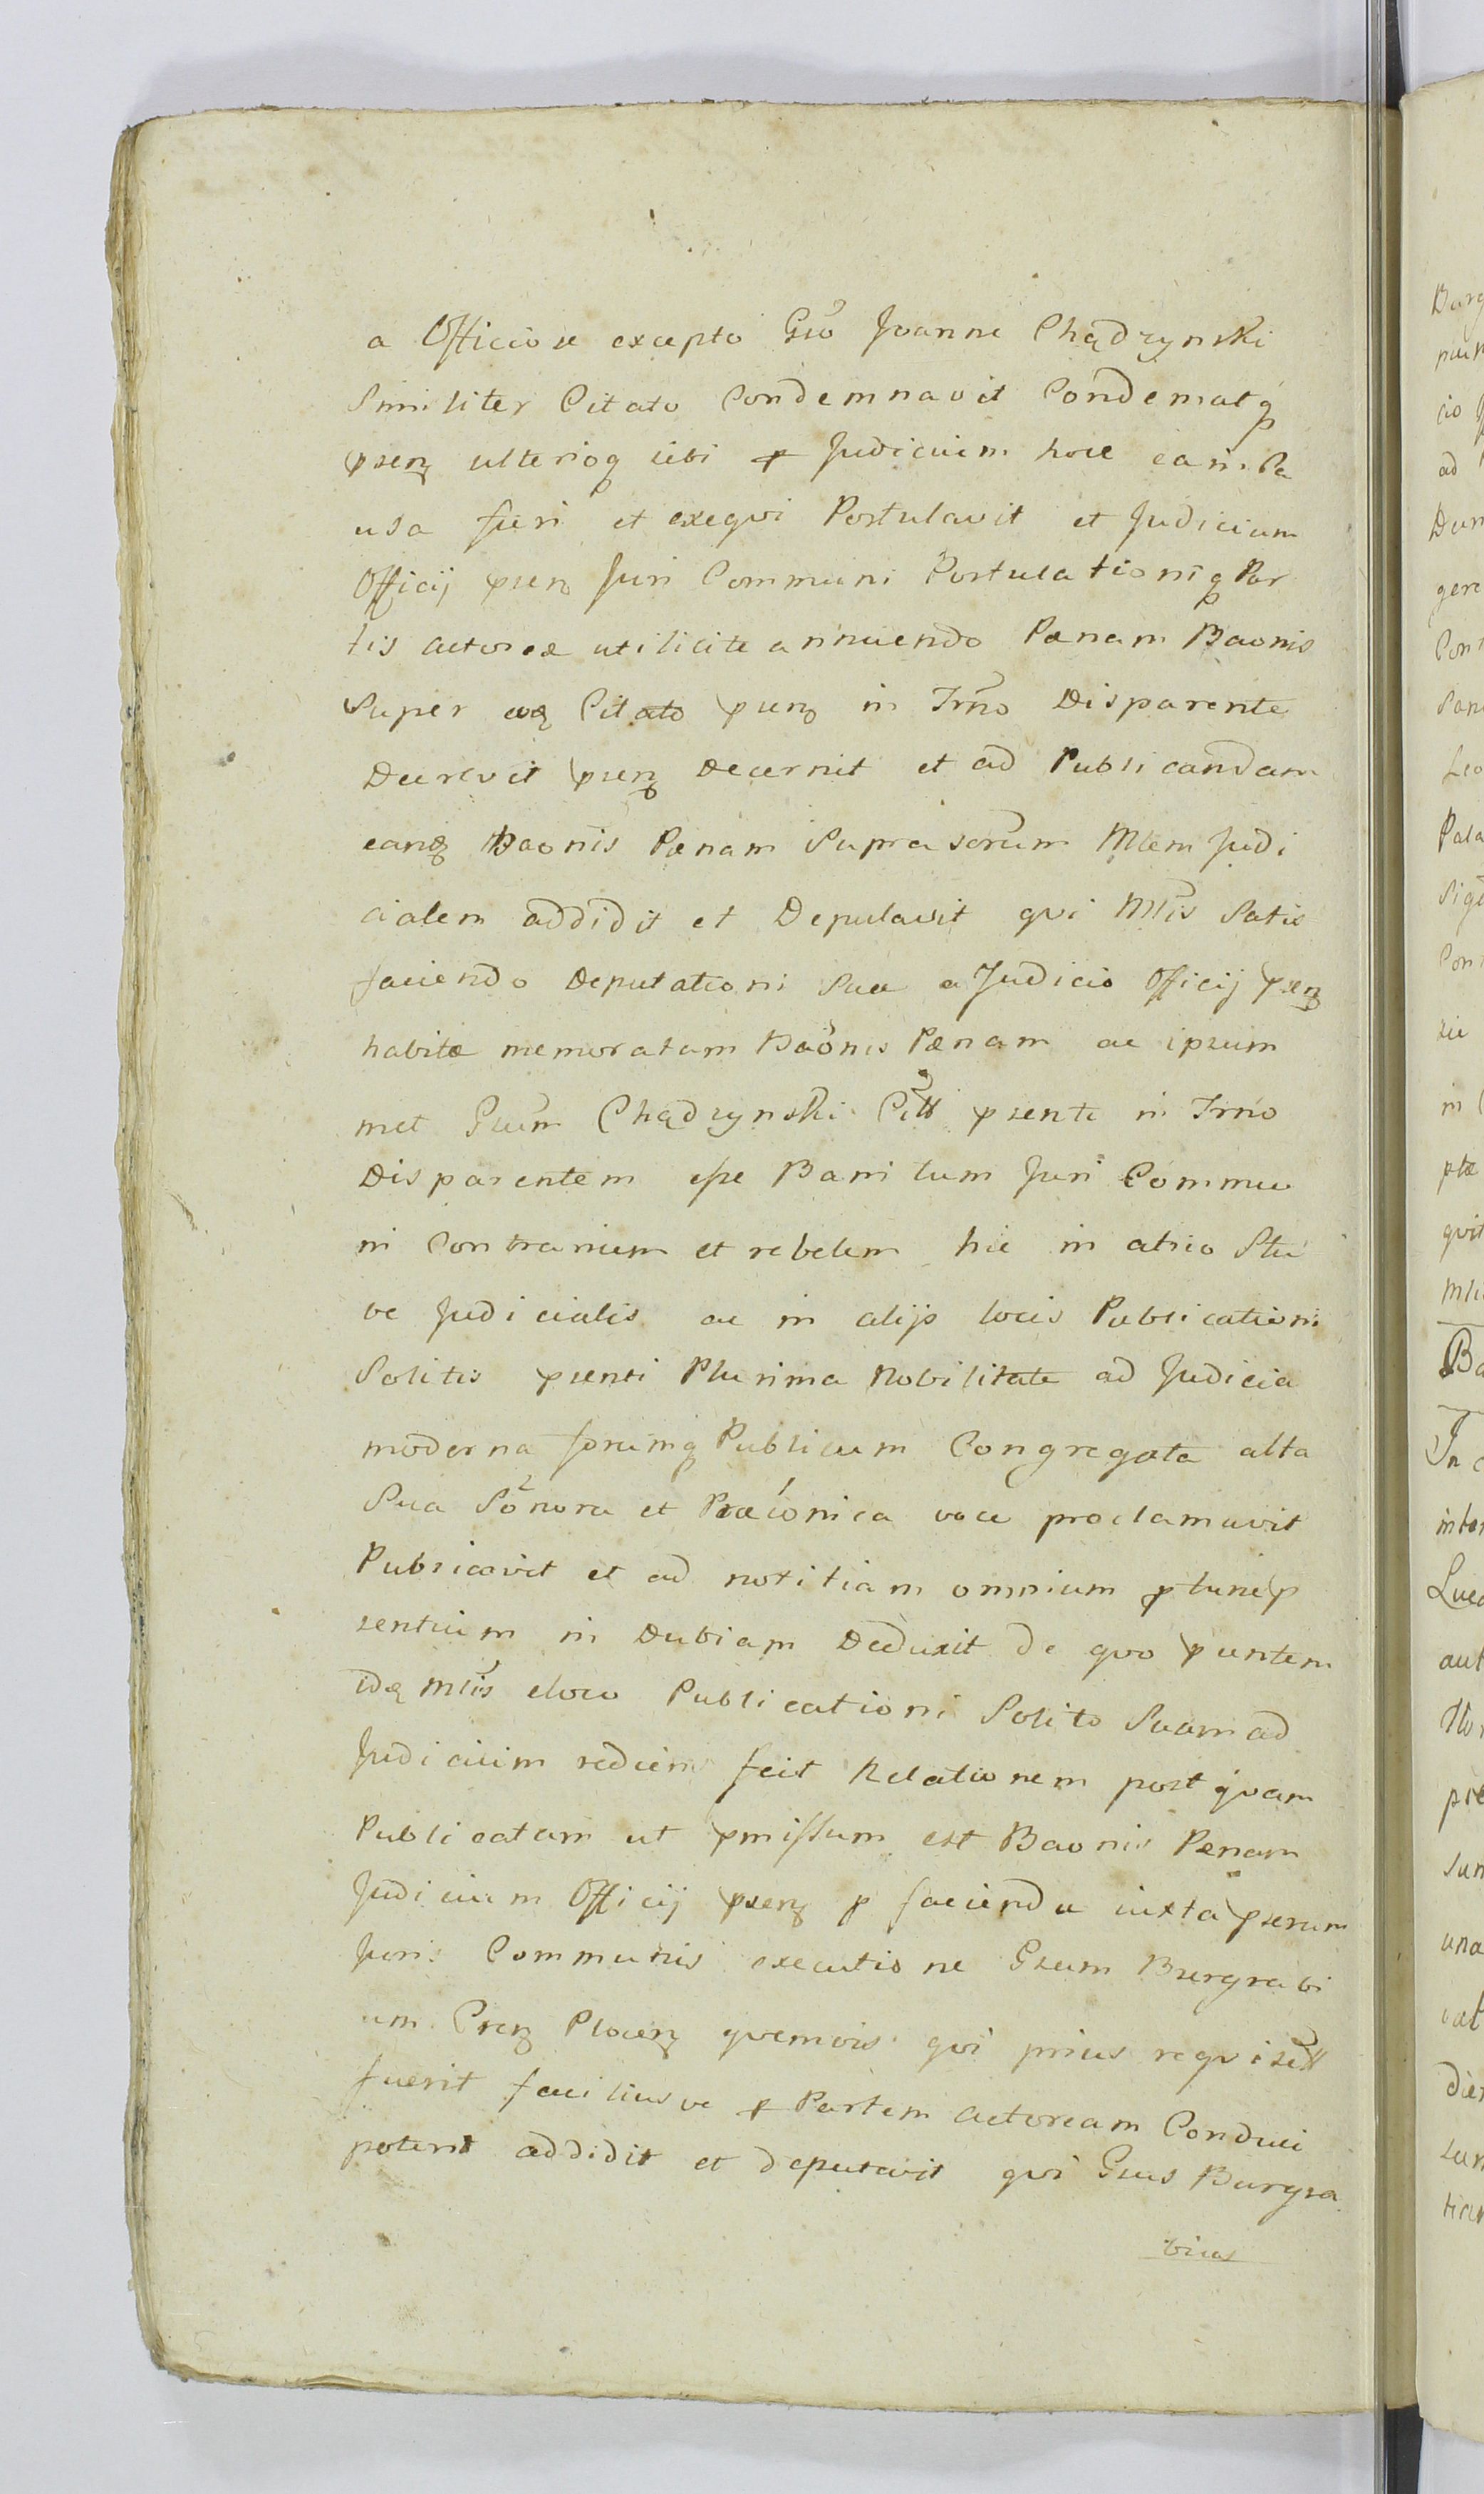 a Officiose excepto Gso Joanne Chądzynski
Similiter Citato Condemnavit Condematq
psenz ulterioq ubi p Judicium hoce eam Ca
usa fieri et exeqvi Postulavit et Judicium
Officij psenz Juri Communi Postulationiq Par
tis actoreæ utilicite annuendo Pænam Baonis
Super eoq Citato psenz in Trno Disparente
Decrevit psenz Decernit et ad Publicandam
eanq Baonis Pænam Suprascrum Mlem Judi
cialem addidit et Deputavit qvi Mlis Satis
faciendo Deputationi Suæ a Judicio Officij psenz
habitæ memoratam Baonis Pænam ac ipsum
met Gsum Chądzynski Citt psente in Trno
Disparentem esse Banitum Juri Commu
ni Contrarium et rebelem hic in atrio Stu
be Judicialis ac in alijs locis Publicationi
Solitis psenti Plurima Nobilitate ad Judicia
moderna forumq Publicum Congregata alta
Sua Sonora et Præconica voce proclamavit
Publicavit et ad notitiam omnium p tunc p
sentium in Dubiam Deduxit de qvo puntem
idq Mlis eloco Publicationi Solito Suam ad
Judicium rediens fecit Relationem post qvam
Publicatam ut pmissum est Baonis Pænam
Judicium Officij psenz p facienda iuxta pserum
Juris Communis executione Gsum Burgrabi
um Crenz Plocenz qvemvis qvi prius reqvisitt
fuerit faciliusve p Partem Actoream Conduci
poterit addidit et deputavit qvi Gsus Burgra
bius
Burg
ad
gere
Pala
in
ptæ
qvit
Ba
In
aut
una